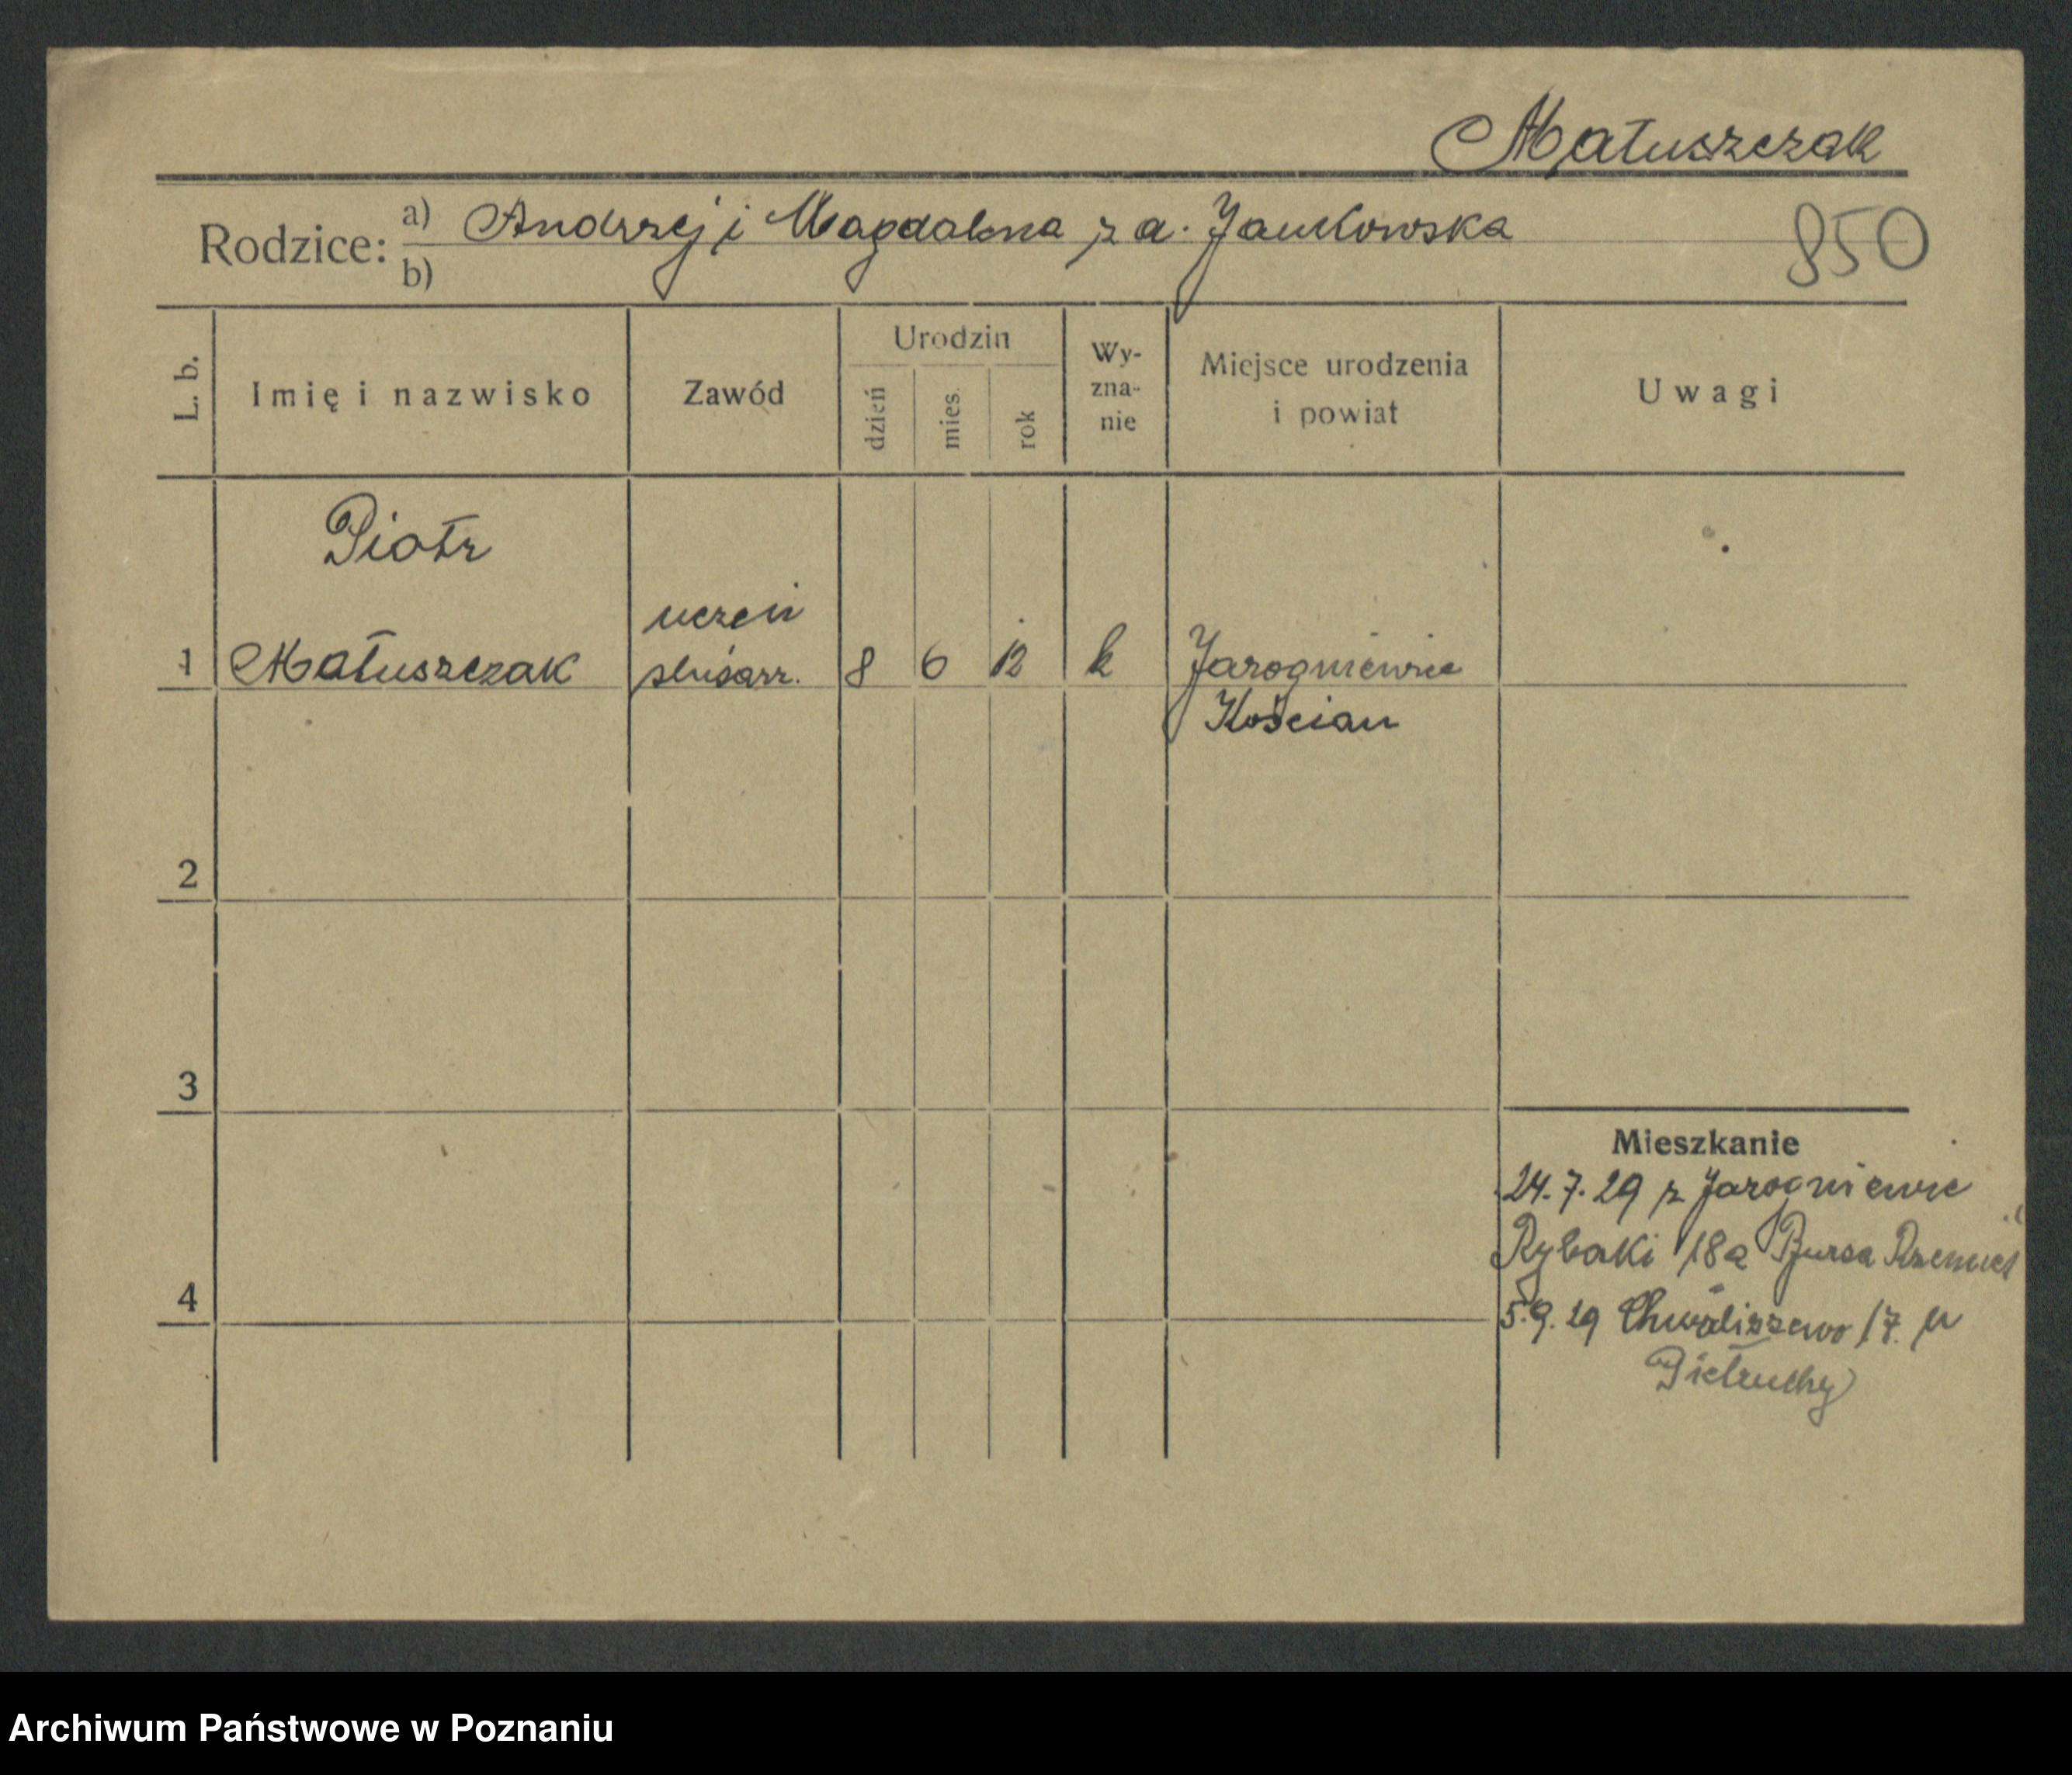 Matuszczak
Rodzice: a) Andrzej i Magdalena z d. Jankowska
b)
850
L. b.
Imię i nazwisko
Zawód
Urodzin
dzień
mies.
rok
Wy-
zna-
nie
Miejsce urodzenia
i powiat
Uwagi
Piotr
uczeń
1 Matuszczak ślusarz. 8 6 12 k Jarogniewice
Kościan
2
3
Mieszkanie
24.7.29 z Jarogniewic
Rybaki 18a Bursa Rzemieś
4
5.9.29 Chwaliszewo 17. u
Pietruchy
Archiwum Państwowe w Poznaniu